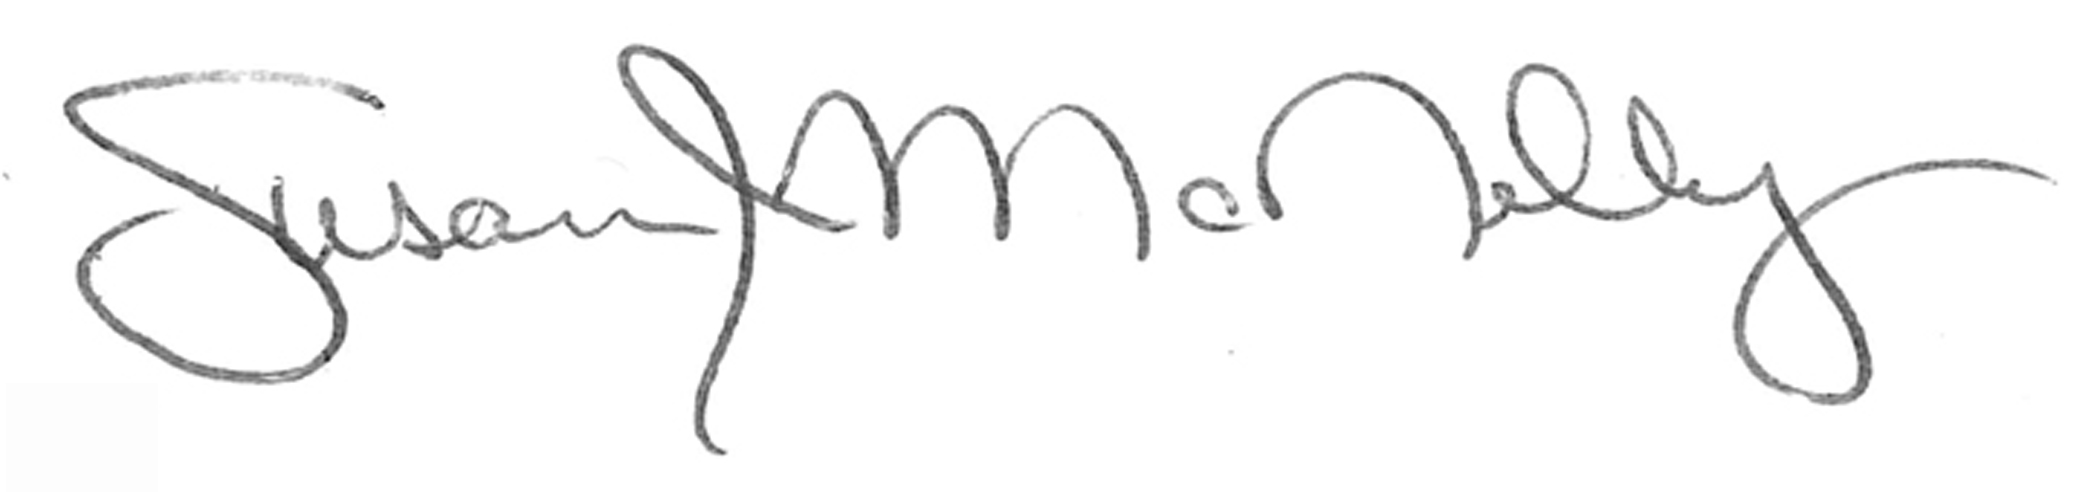 Susan J McNelly